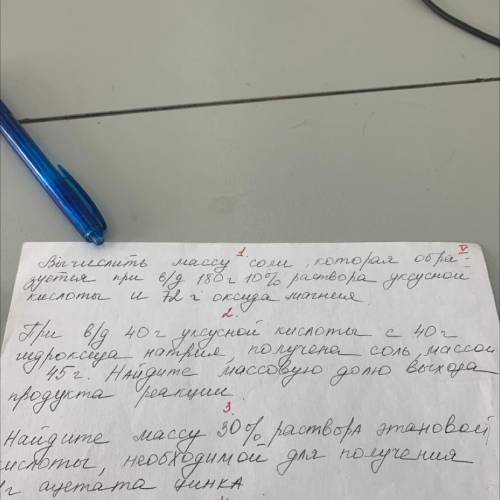 V
1.
Вычислить массу соли, которая обра-
зуется при в/д 180 г 10% раствора уксусной
кислоты и 72 г оксида магния.
2.
При в/д 40 г уксусной кислоты с 40 г
гидроксида натрия, получена соль, массой
45 г. Найдите массовую долю выхода
продукта реакции.
3.
Найдите массу 30% раствора этановой
кислоты, необходимой для получения
г ацетата цинка